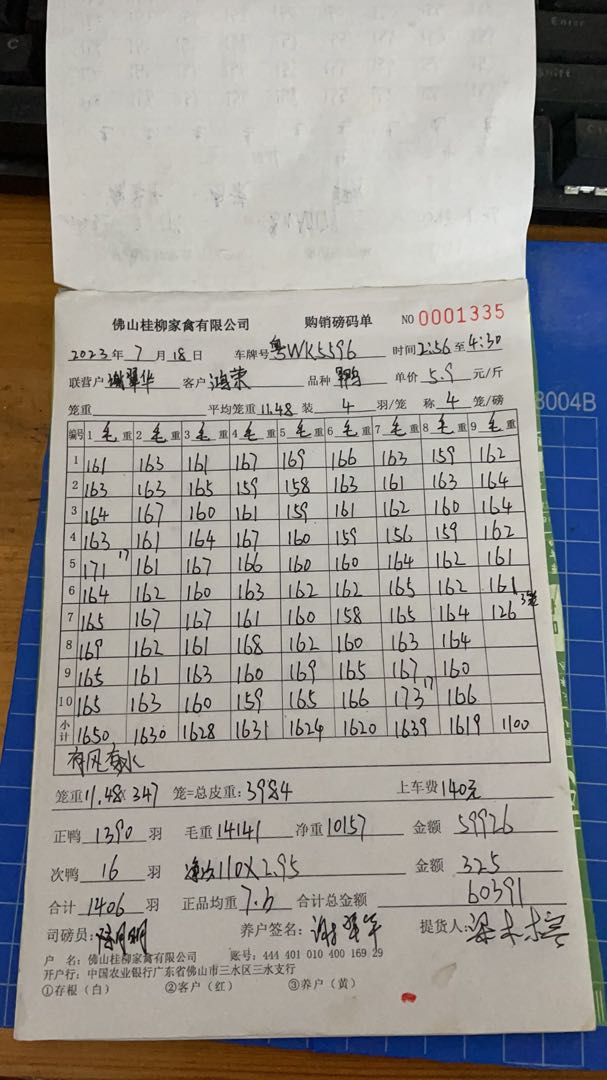 佛山桂柳家禽有限公司 购销磅码单 NO 0001335
2023年 7 月 18 日 车牌号 粤WK5596 时间 2:56 至 4:30
联营户 谢翠华 客户 鸿荣 品种 单价 5.9 元/斤
笼重 平均笼重 11.48 装 4 羽/笼 称 4 笼/磅
编号 1 毛 重 2 毛 重 3 毛 重 4 毛 重 5 毛 重 6 毛 重 7 毛 重 8 毛 重 9 毛 重
1 161 163 161 167 169 166 163 159 162
2 163 163 165 159 158 163 161 163 164
3 164 167 160 161 159 161 162 160 164
4 163 161 164 167 160 159 156 159 162
5 171 17 161 167 166 160 160 164 162 161
6 164 162 160 163 162 162 165 162 161
7 165 167 167 161 160 158 165 164 126 3笼
8 169 162 161 168 162 160 163 164
9 165 161 163 160 169 165 167 160
10 165 163 160 159 165 166 173 17 166
小计 1650 1630 1628 1631 1624 1620 1639 1619 1100
有风有水
笼重 11.48 × 347 笼=总皮重: 3984 上车费 140元
正鸭 1390 羽 毛重 14141 净重 10157 金额 59926
次鸭 16 羽 110×2.95 金额 325
合计 1406 羽 正品均重 7.3 合计总金额 60391
司磅员: 养户签名: 谢翠华 提货人:
户 名: 佛山桂柳家禽有限公司 账号: 444 401 010 400 169 29
开户行: 中国农业银行广东省佛山市三水区三水支行
①存根（白） ②客户（红） ③养户（黄）
8004B
Enter
Shift
C